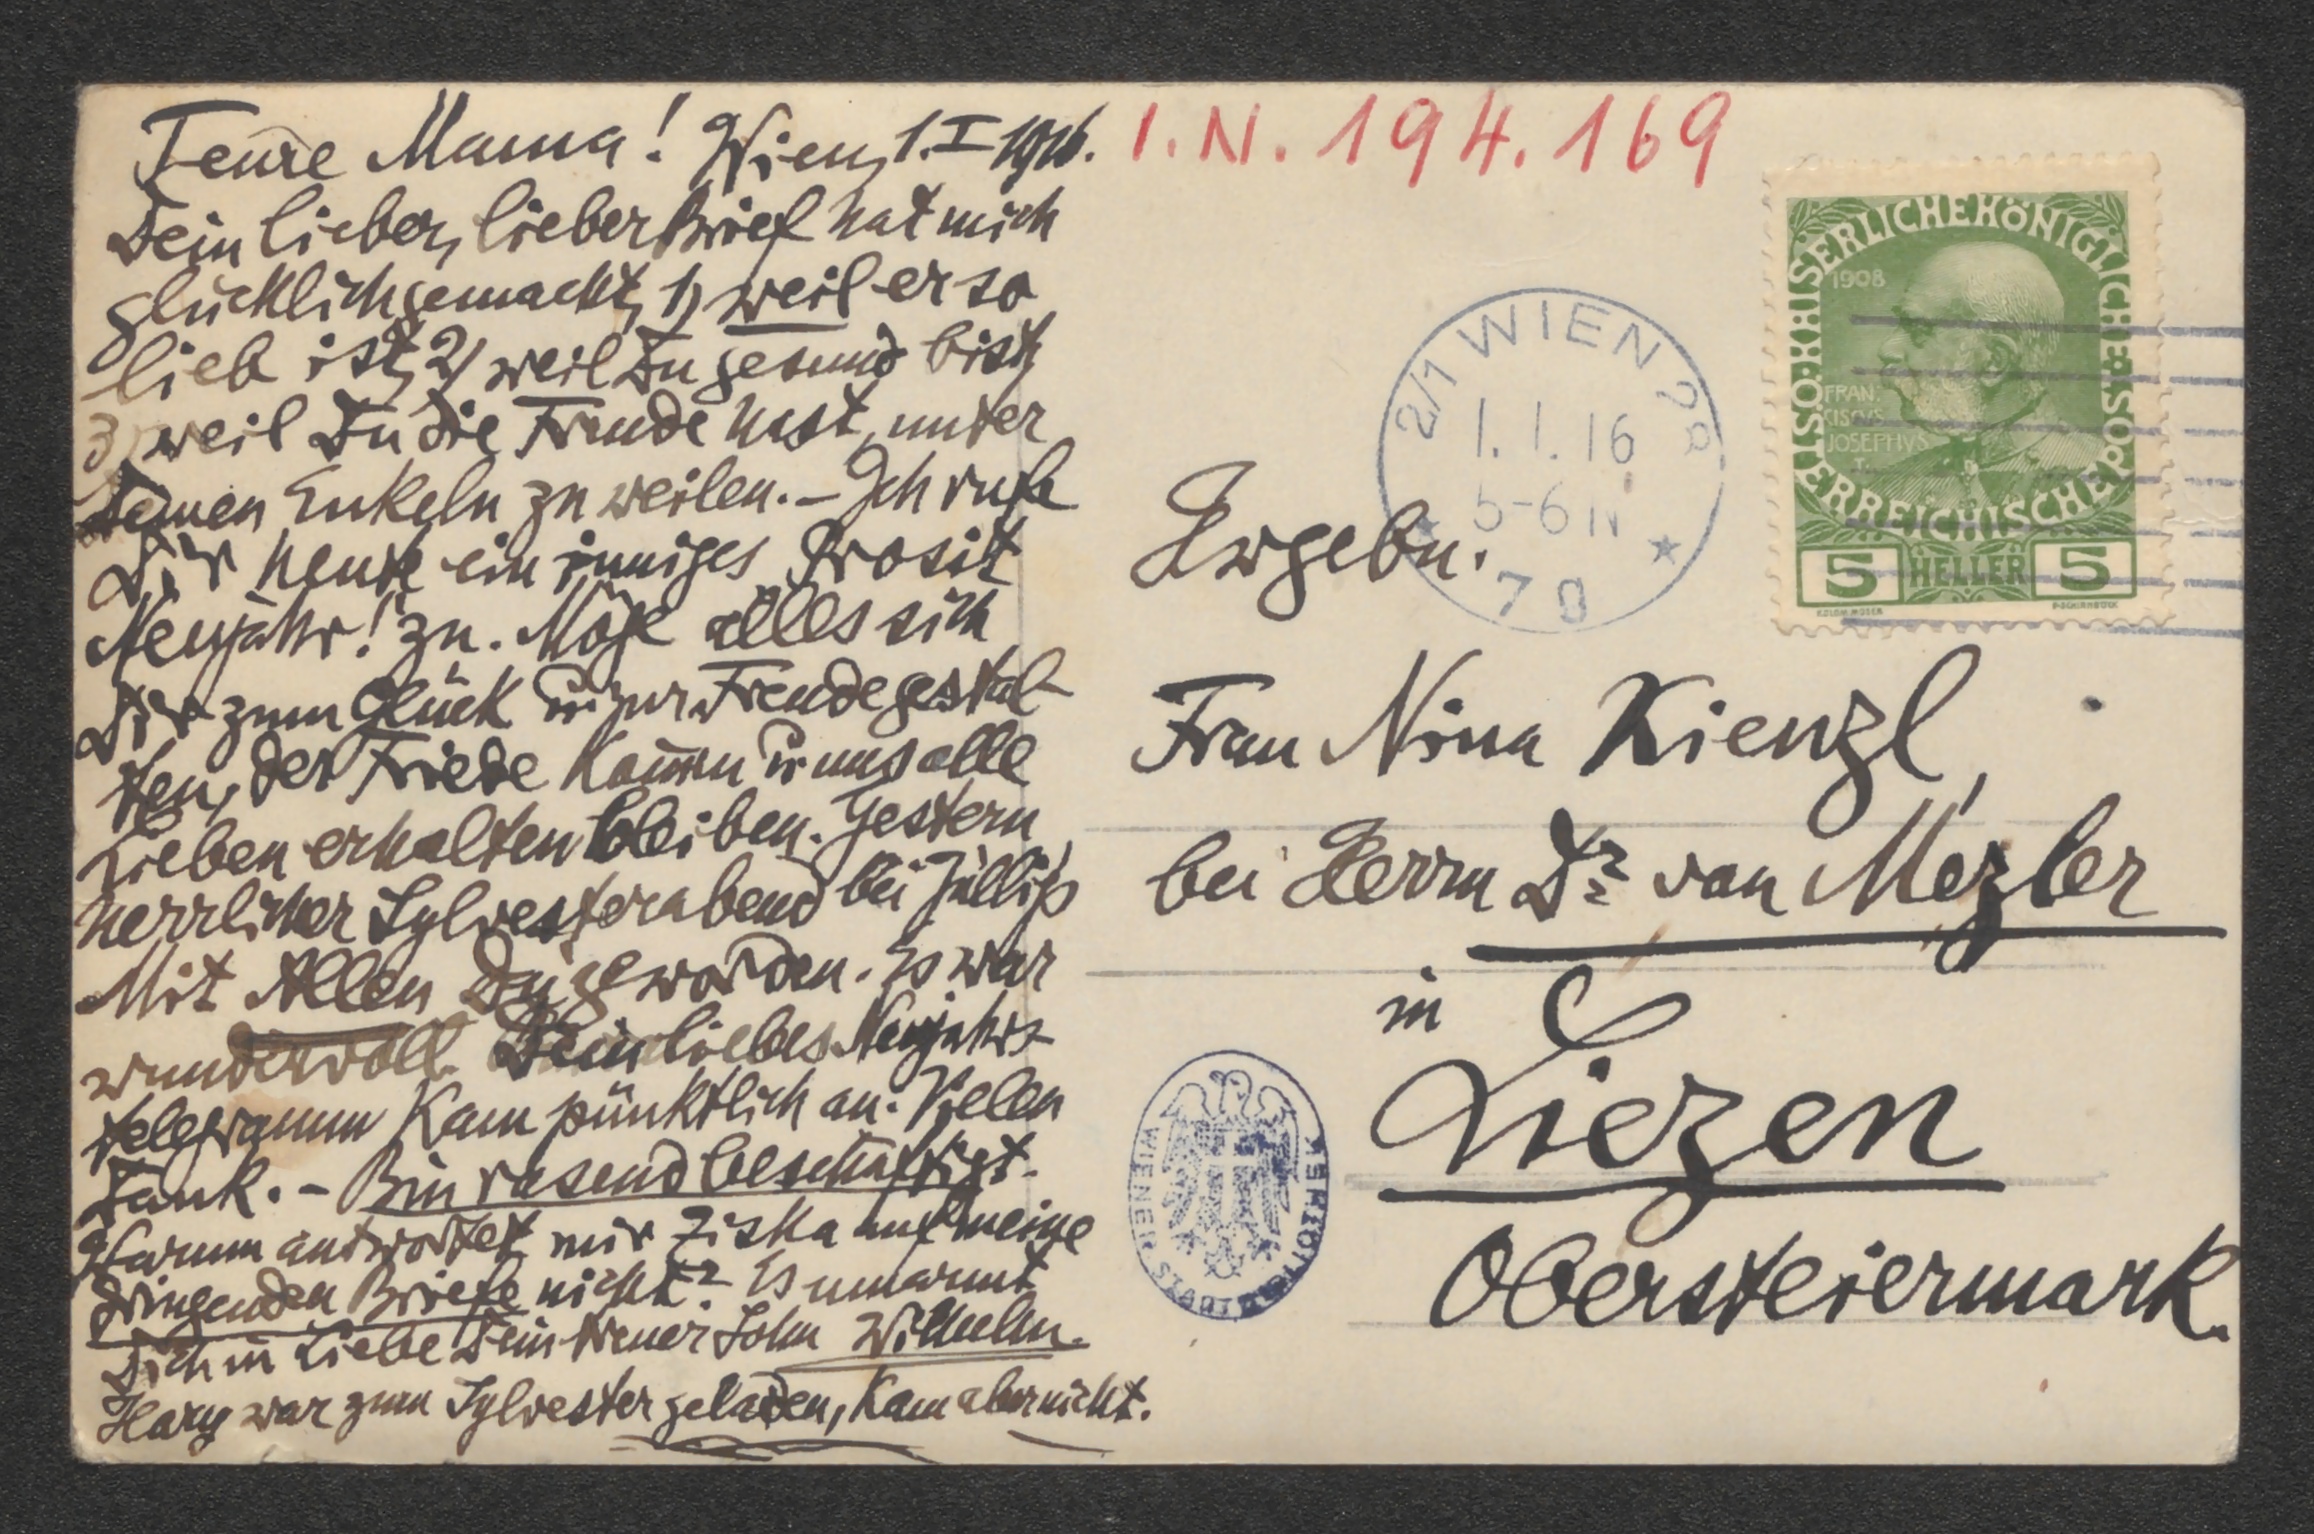 Teure Mama! Wien, 1. I 1916.
Dein lieber, lieber Brief hat mich
glücklich gemacht, 1) weil er so
lieb ist, 2) weil Du gesund bist,
3) weil Du die Freude hast, unter
Deinen Enkeln zu weilen. – Ich rufe
Dir heute ein inniges Prosit
Neujahr! zu. Möge alles sich
Dir zum Glück u. zur Freude gestal-
ten, der Friede kommen u. uns alle
Lieben erhalten bleiben. Gestern
herrlicher Sylvesterabend bei
Mit Allen Du geworden. Es war
wundervoll. Dein liebes Neujahrs-
telegramm kam pünktlich an. Vielen
Dank. – Bin rasend beschäftigt.
Warum antwortet mir Ziska auf meine
dringenden Briefe nicht? Es umarmt
Dich in Liebe Dein treuer Sohn Wilhelm.
Hary war zum Sylvester geladen, kam aber nicht.
I.N. 194.169
KAISERLICHE KÖNIGLICHE ÖSTERREICHISCHE POST
1908
FRAN.
CISCVS
JOSEPHVS
5 HELLER 5
KOLOM. MOSER
2/1 WIEN
1.1.16
5-6 N
Hrgebn.
Frau Nina Kienzl,
bei Herrn Dr. von Mezler
in
Liezen
Obersteiermark.
WIENER STADTBIBLIOTHEK